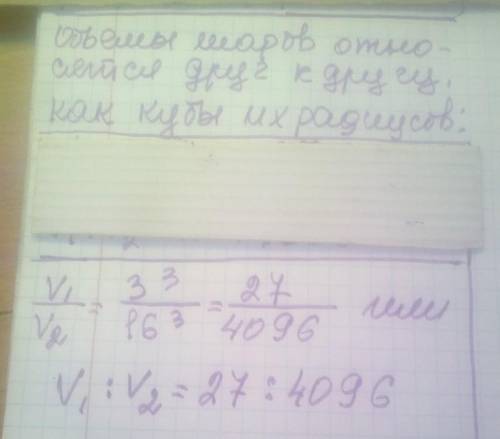 объемы шаров отно-
сятся друг к другу,
как кубы их радиусов:
V₁/V₂ = 3³/16³ = 27/4096 или
V₁ : V₂ = 27 : 4096